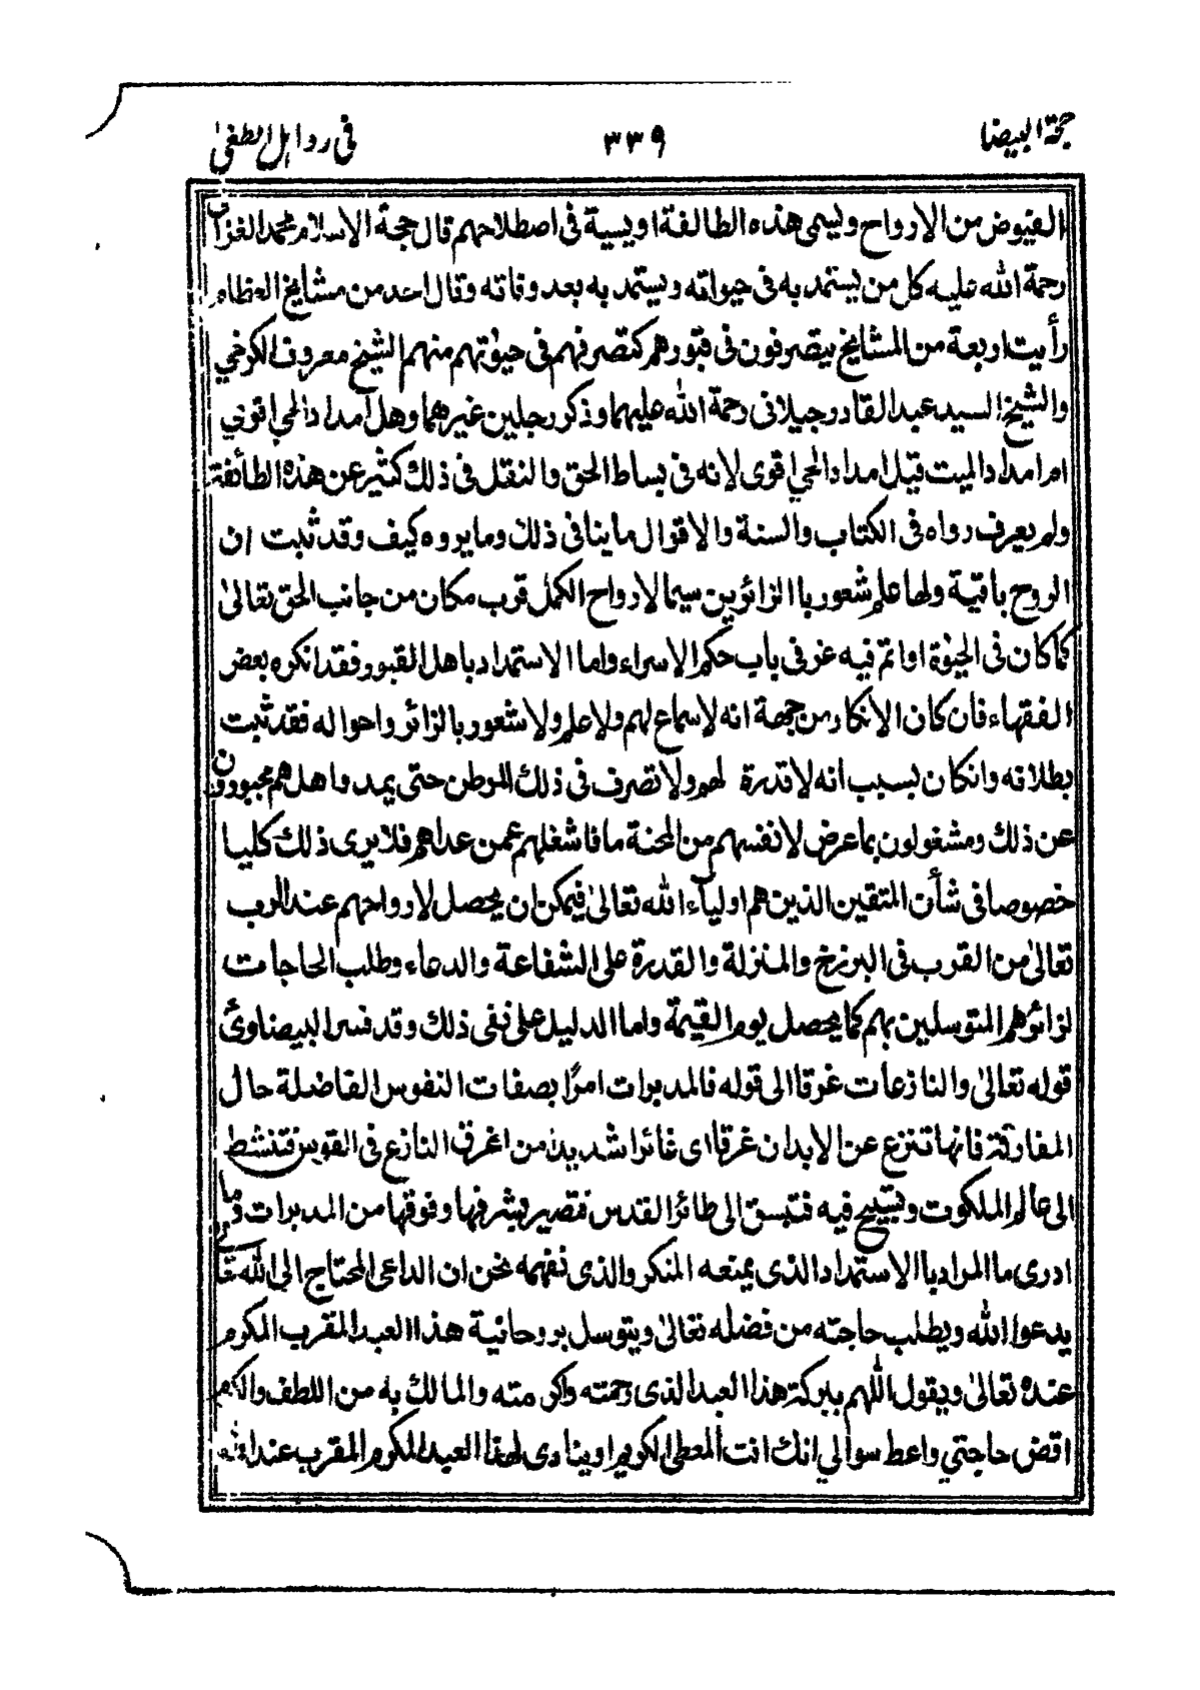 حجة البيضا ٣٣٩ فى رد اہل الطغىٰ
الفيوض من الارواح ويسمى هذه الطالفة اويسية فى اصطلاحهم قال حجة الاسلام محمد الغزالى
رحمة الله عليه كل من يستمد به فى حيواته ويستمد به بعد وفاته وقال احد من مشايخ العظام
رأيت اربعة من المشايخ يتصرفون فى قبورهم كتصرفهم فى حيوٰتهم منهم الشيخ معروف الكرخي
والشيخ السيد عبد القادر جيلانى رحمة الله عليهما وذكر رجلين غيرهما وهل امداد الحي اقوي
ام امداد الميت قيل امداد الحي اقوى لانه فى بساط الحق والنقل فى ذلك كثير عن هذه الطائفة
ولم يعرف رواه فى الكتاب والسنة والاقوال ما ينافى ذلك وما يروه كيف وقد ثبت ان
الروح باقية ولها علم شعور باالزائرين سيما لارواح الكمل قرب مكان من جانب الحق تعالىٰ
كما كان فى الحيوٰة اواتم فيه عز فى باب حكم الاسراء واما الاستمداد باهل القبور فقد انكره بعض
الفقهاء فان كان الانكار من جهة انه لاسماع لهم ولاعلم ولاشعور بالزائر واحواله فقد ثبت
بطلانه وانكان بسبب انه لا قدرة لهم ولا تصرف فى ذلك الموطن حتى يمد واهل هم محبورون
عن ذلك ومشغولون بما عرض لانفسهم من المحنة ما فاشغلهم عمن عداهم فلايرى ذلك كليا
خصوصا فى شأن المتقين الذين هم اوليآء الله تعالىٰ فيمكن ان يحصل لارواحهم عند الرب
تعالىٰ من القرب فى البرزخ والمنزلة والقدرة على الشفاعة والدعاء وطلب الحاجات
لزائرهم المتوسلين بهم كما يحصل يوم القيمة واما الدليل على نفى ذلك وقد فسر البيضاوى
قوله تعالىٰ والنازعات غرقا الى قوله فالمدبرات امرًا بصفات النفوس الفاضلة حال
المفارقة فانها تنزع عن الابدان غرقا اى غائرا شديدا من اغرق النازع فى القوس فتنشط
الى عالم الملكوت وتسيح فيه فتسبق الى طائر القدس فتصير بشرفها وفوقها من المدبرات وما
ادرى ما المراد باالاستمداد الذى يمنعه المنكر والذى نفهمه نحن ان الداعى المحتاج الى الله تعالى
يدعوا الله ويطلب حاجته من فضله تعالىٰ ويتوسل بروحانية هذا العبد المقرب المكرم
عنده تعالىٰ ويقول اللهم ببركة هذا العبد الذى رحمته واكرمته والمالك به من اللطف والكرم
اقض حاجتي واعط سوالي انك انت المعطى الكريم او ينادى لهذا العبد المكرم المقرب عند الله